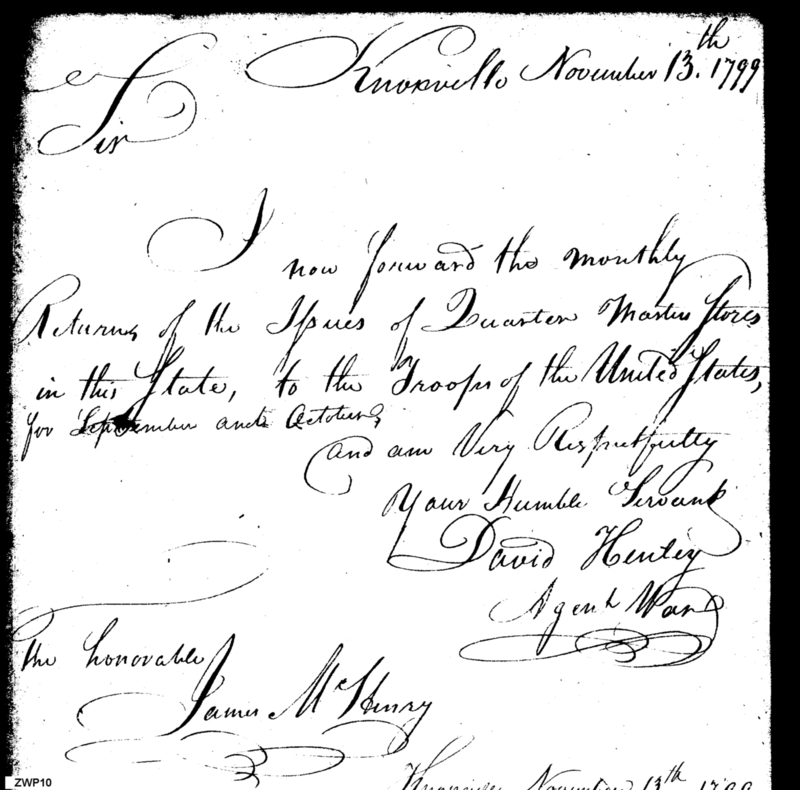 Knoxville November 13th. 1799
Sir
I
now forward the monthly
Returns of the Issues of Quarter Masters Stores
in this State, to the Troops of the United States,
for September and October,
and am Very Respectfully
Your Humble Servant
David Henley
Agent War
The honorable
James McHenry
Knoxville November 13th 1799
ZWP10